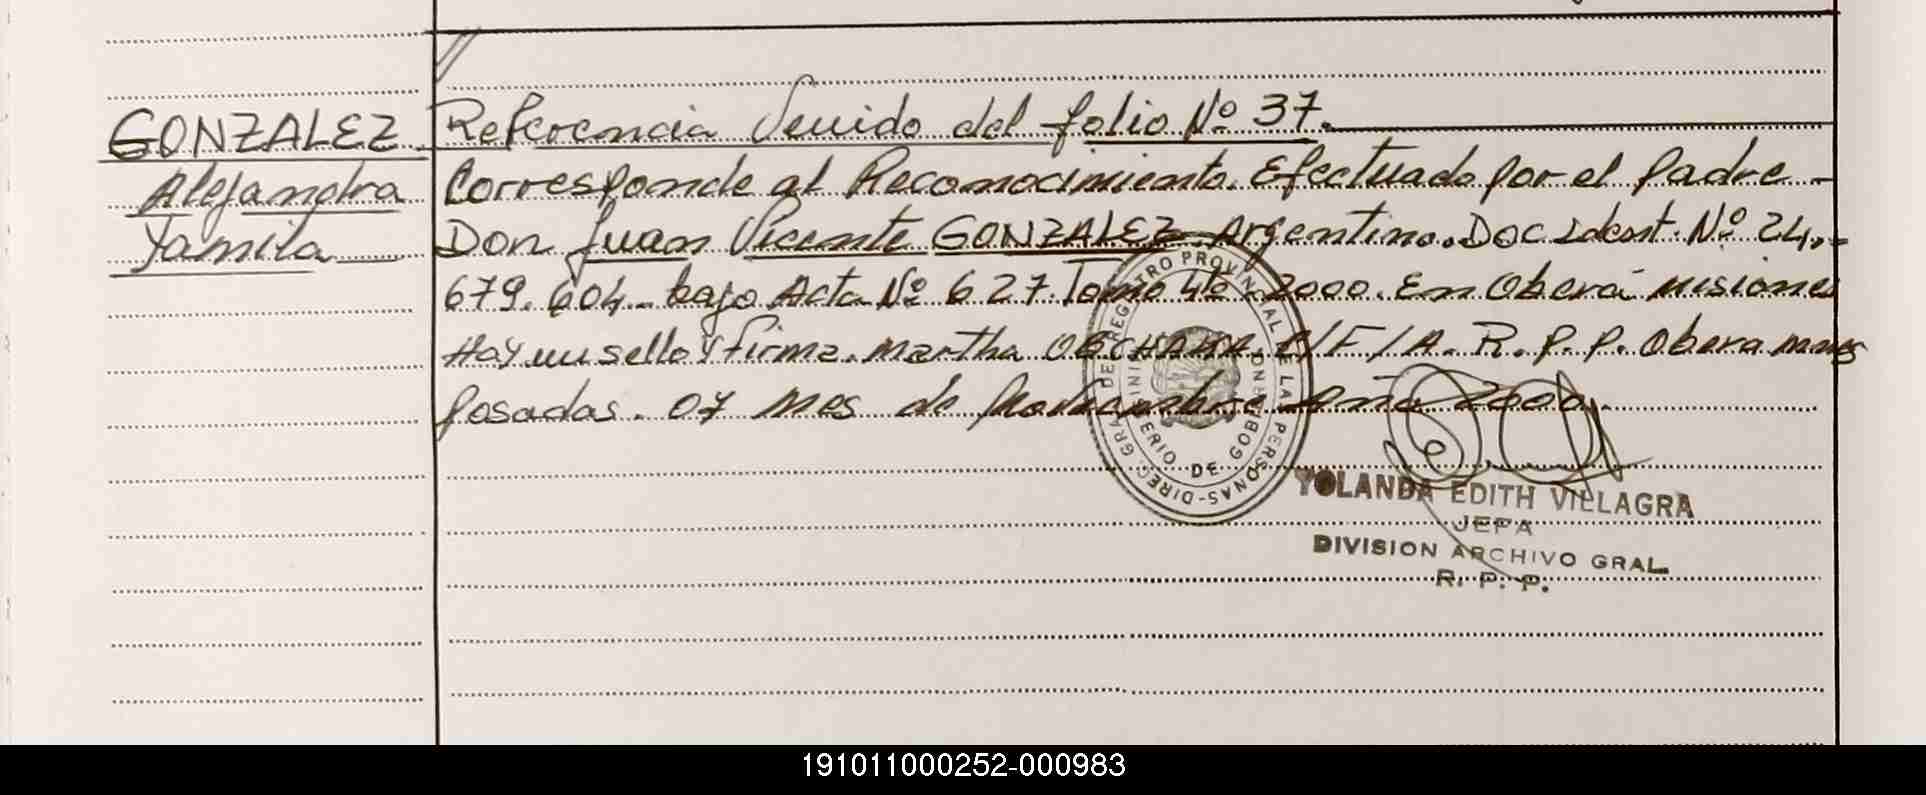 GONZALEZ Referencia Venido del folio Nº 37.
Alejandra Corresponde al Reconocimiento. Efectuado por el Padre -
Yamila Don Juan Vicente GONZALEZ. Argentino. Doc Ident. Nº 24.-
679.604.- bajo Acta Nº 627. Tomo 4to - 2000. En Oberá misiones
Hay un sello y firma. Martha /F/A. R.P.P. Obera mnes
Posadas. 07 Mes de Noviembre Año 2000.
DIREC. GRAL. DE REGISTRO PROVINCIAL DE LAS PERSONAS
MINISTERIO DE GOBIERNO
YOLANDA EDITH VILLAGRA
JEFA
DIVISION ARCHIVO GRAL.
R. P. P.
191011000252-000983